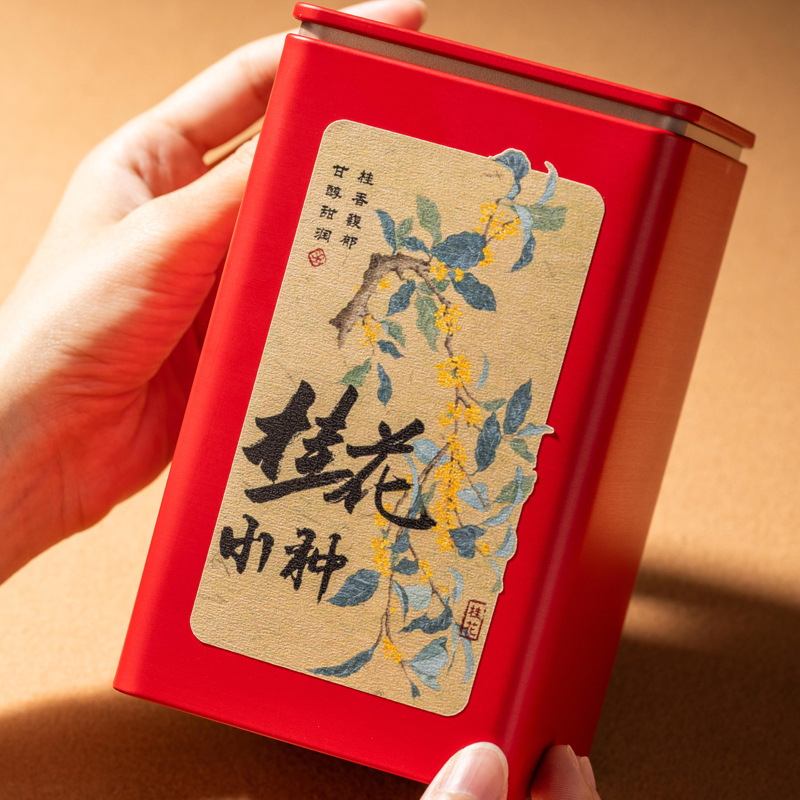 桂香馥郁
甘醇甜润
桂花
小种
桂花